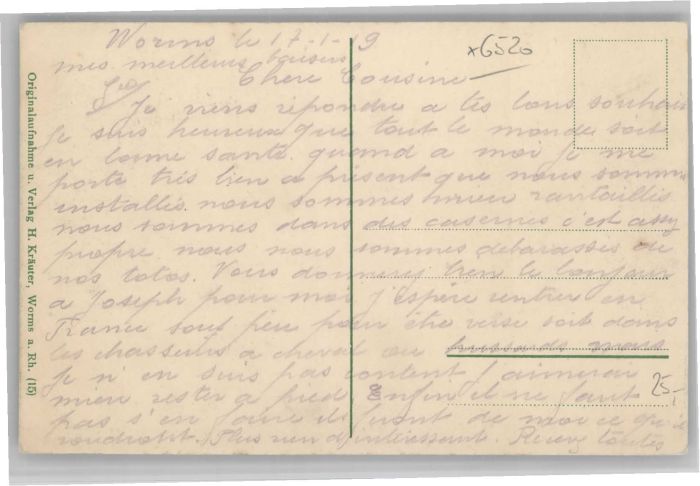 Worms le 17-1-19
x6520
mes meilleurs baisers
Chere Cousine
Je viens répondre a tes bons souhaits
Je suis heureux que tout le monde soit
en bonne santé. quand a moi je me
porte très bien a présent que nous sommes
installés. nous sommes mieu rantaillés
nous sommes dans des casernes c'est assez
propre nous nous sommes debarassés de
nos totos. Vous donnerez bien le bonjour
a Joseph pour moi j'éspère rentrer en
France sous peu pour être versé soit dans
les chasseurs a cheval ou hussards mais
Je n'en suis pas content j'aimerai
mieu rester a pied Enfin il ne faut
pas s'en faire ils feront de moi ce qu'il
voudront. Plus rien d'intéressant. Recevez toutes
25,-
Originalaufnahme u. Verlag H. Kräuter, Worms a. Rh. (15)